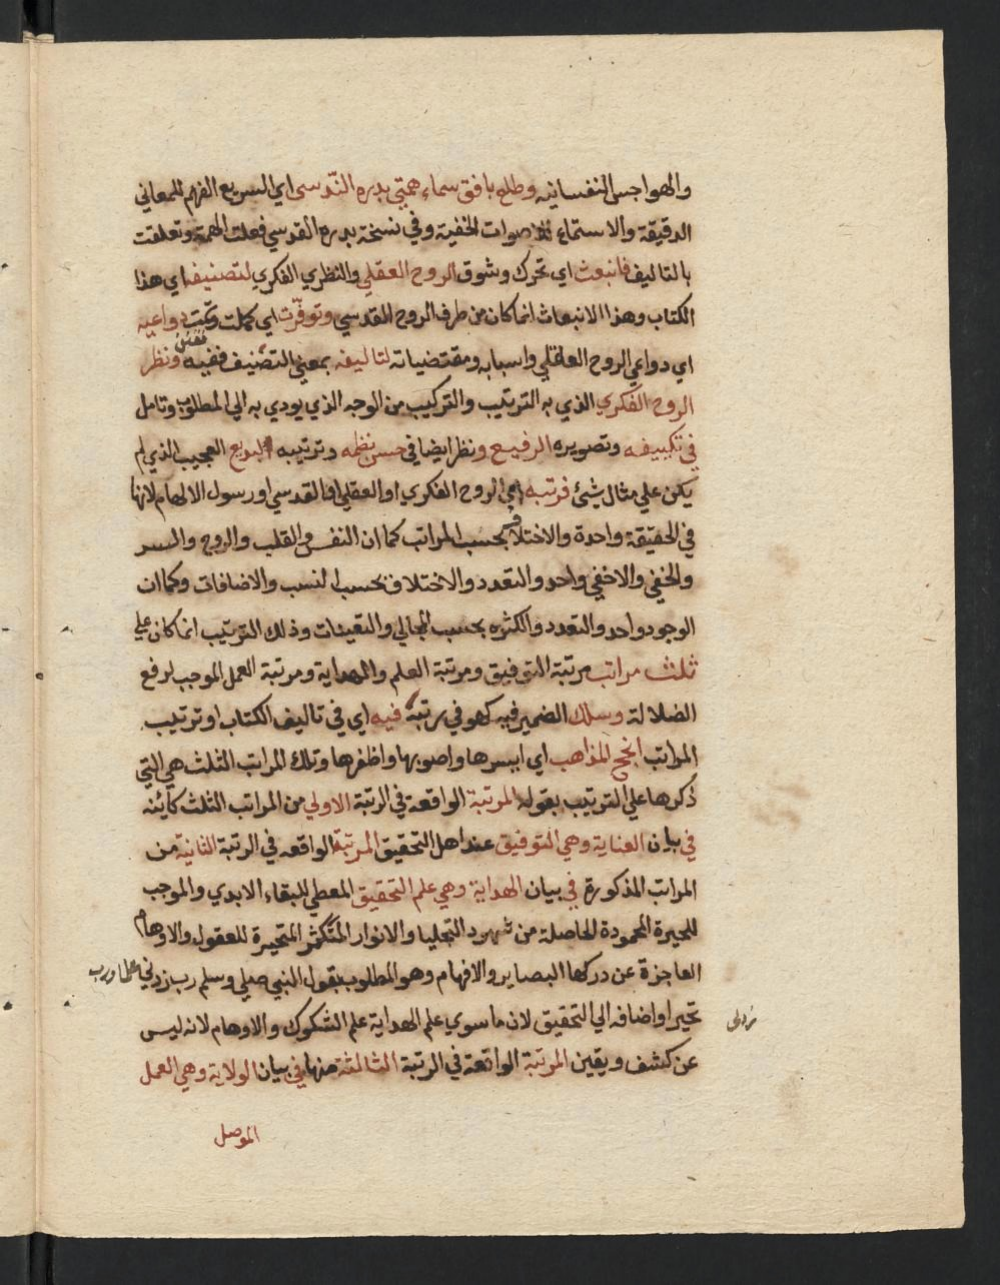 والهواجس النفسانيه وطلع بافق سماء همتي بدره النّدسى اي السريع الفهم للمعاني
الدقيقة والاستماع للاصوات الخفية وفي نسخة بدره القدسي فعلت الهمة وتعلقت
بالتاليف فانبعث اي تحرك وشوق الروح العقلي والنظري الفكري لتصنيف اي هذا
الكتاب وهذا الانبعاث انما كان من طرف الروح القدسي وتوفّرت اي كملت وتمّت دواعيه
اي دواعي الروح العقلي واسبابه ومقتضياته لتاليفه بمعني التصنيف ففيه ونظر
الروح الفكري الذي به الترتيب والتركيب من الوجه الذي يودي به الي المطلوب وتامل
في تكييفه وتصويره الرفيع ونظر ايضا في حسن نظمه وترتيبه البديع العجيب الذي لم
يكن علي مثال شئ فرتبه اي الروح الفكري او العقلي او القدسي او رسول الالهام لانها
في الحقيقة واحدة والاختلاف بحسب المراتب كما ان النفس والقلب والروح والسر
والخفي والاخفي واحد والتعدد والاختلاف بحسب النسب والاضافات وكما ان
الوجود واحد والتعدد والكثره بحسب المجالي والتعينات وذلك الترتيب انما كان علي
ثلث مراتب مرتبة التوفيق ومرتبة العلم والهداية ومرتبة العمل الموجب لرفع
الضلالة وسلك الضمير فيه كهو في رتبه فيه اي في تاليف الكتاب او ترتيب
المراتب انجح المذاهب اي ايسرها واصوبها واظفرها وتلك المراتب الثلث هي التي
ذكرها علي الترتيب بقوله المرتبة الواقعة في الرتبة الاولي من المراتب الثلث كاينه
في بيان العناية وهي التوفيق عند اهل التحقيق المرتبة الواقعه في الرتبة الثانية من
المراتب المذكورة في بيان الهداية وهي علم التحقيق المعطي للبقاء الابدي والموجب
للحيرة المحمودة الحاصلة من شهود التجليا والانوار المتكثر المتحيرة للعقول والاوهام
العاجزة عن دركها البصاير والافهام وهو المطلوب بقول النبي صلي وسلم رب زدني علما ورب
زدنى
تحيرا واضافه الي التحقيق لان ما سوي علم الهداية علم الشكوك والاوهام لانه ليس
عن كشف ويقين المرتبة الواقعة في الرتبة الثالثة منها في بيان الولاية وهي العمل
الموصل